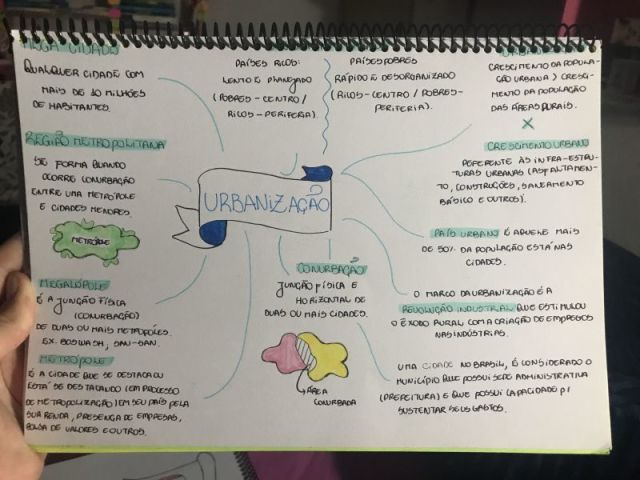 MEGA CIDADE
QUALQUER CIDADE COM
MAIS DE 10 MILHÕES
DE HABITANTES.
REGIÃO METROPOLITANA
SE FORMA QUANDO
OCORRE CONURBAÇÃO
ENTRE UMA METRÓPOLE
E CIDADES MENORES.
METRÓPOLE
MEGALÓPOLE
É A JUNÇÃO FÍSICA
(CONURBAÇÃO)
DE DUAS OU MAIS METRÓPOLES.
EX. BOSWASH, SAN-SAN.
METRÓPOLE
É A CIDADE QUE SE DESTACA OU
ESTÁ SE DESTACANDO (EM PROCESSO
DE METROPOLIZAÇÃO) EM SEU PAÍS PELA
SUA RENDA, PRESENÇA DE EMPRESAS,
BOLSA DE VALORES E OUTROS.
PAÍSES RICOS:
LENTO E PLANEJADO
(POBRES-CENTRO/
RICOS-PERIFERIA).
PAÍSES POBRES
RÁPIDO E DESORGANIZADO
(RICOS-CENTRO/POBRES-
PERIFERIA).
URBANIZAÇÃO
CONURBAÇÃO
JUNÇÃO FÍSICA E
HORIZONTAL DE
DUAS OU MAIS CIDADES.
ÁREA
CONURBADA
CRESCIMENTO DA POPULA-
ÇÃO URBANA > CRESCI-
MENTO DA POPULAÇÃO
DAS ÁREAS RURAIS.
X
CRESCIMENTO URBANO
REFERENTE ÀS INFRA-ESTRU-
TURAS URBANAS (ASFALTAMEN-
TO, CONSTRUÇÕES, SANEAMENTO
BÁSICO E OUTROS).
PAÍS URBANO É AQUELE MAIS
DE 50% DA POPULAÇÃO ESTÁ NAS
CIDADES.
O MARCO DA URBANIZAÇÃO É A
REVOLUÇÃO INDUSTRIAL QUE ESTIMULOU
O ÊXODO RURAL COM A CRIAÇÃO DE EMPREGOS
NAS INDÚSTRIAS.
UMA CIDADE NO BRASIL, É CONSIDERADO O
MUNICÍPIO QUE POSSUI SEDE ADMINISTRATIVA
(PREFEITURA) E QUE POSSUI CAPACIDADE P/
SUSTENTAR SEUS GASTOS.